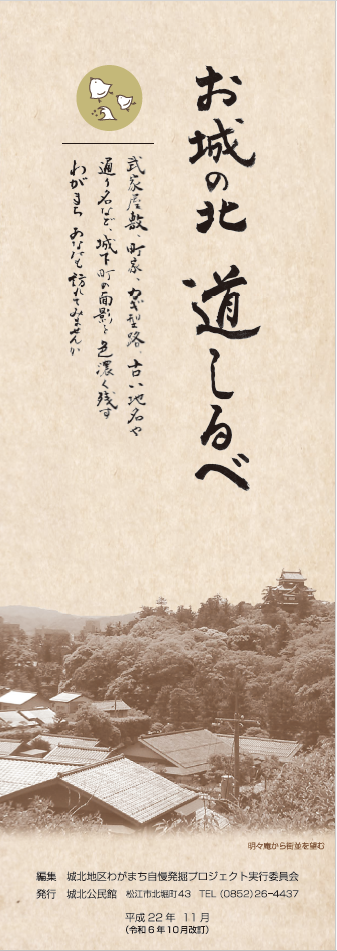 お城の北 道しるべ
武家屋敷、町家、かぎ型路、古い地名や
通り名など、城下町の面影を色濃く残す
わがまち あなたも訪れてみませんか
明々庵から街並を望む
編集 城北地区わがまち自慢発掘プロジェクト実行委員会
発行 城北公民館 松江市北堀町43 TEL (0852)26-4437
平成22年 11月
(令和6年10月改訂)